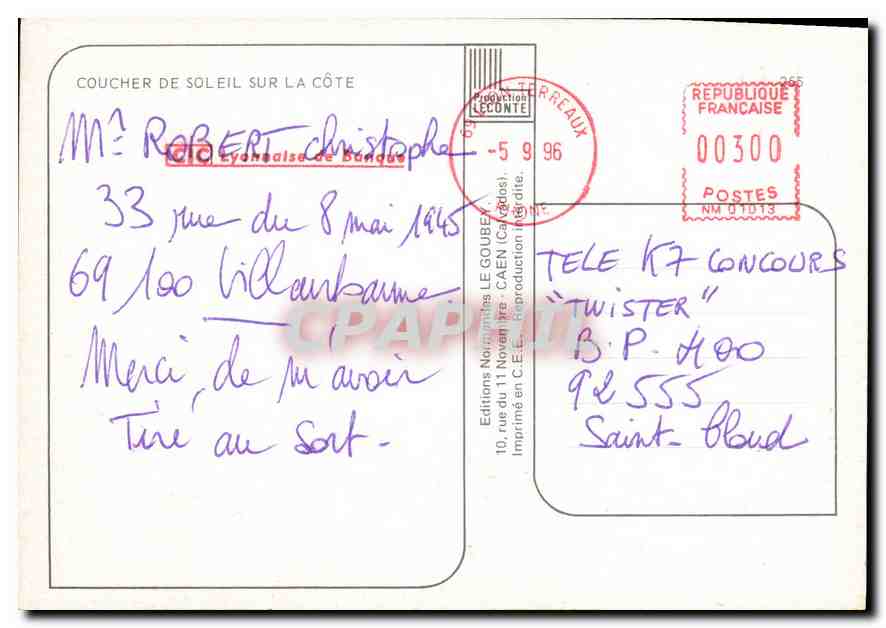 COUCHER DE SOLEIL SUR LA CÔTE
Mr ROBERT christophe
CIC Lyonnaise de Banque
33 rue du 8 mai 1945
69 100 Villeurbanne
Merci, de m'avoir
Tiré au Sort-
Production
LECONTE
69 LYON TERREAUX
-5 9 96
RHONE
265
REPUBLIQUE
FRANÇAISE
00300
POSTES
NM 01013
Editions Normandes LE GOUBEY.
10, rue du 11 Novembre - CAEN (Calvados).
Imprimé en C.E.E. Reproduction interdite.
TELE K7 CONCOURS
"TWISTER"
B.P. 400
92 555
Saint-Cloud
CPAPHIL